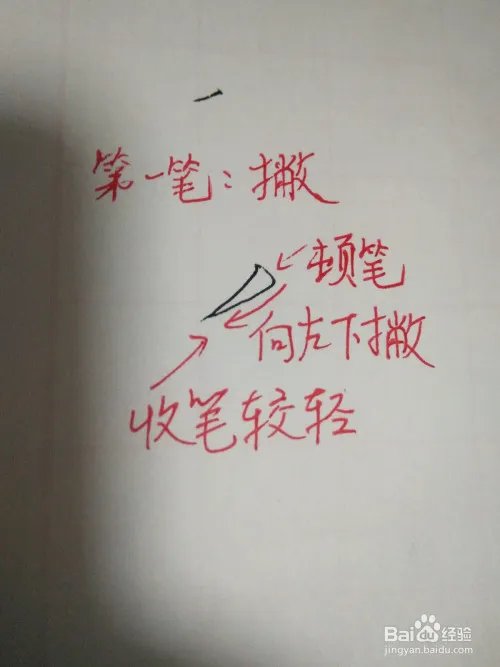 第一笔：撇
顿笔
向左下撇
收笔较轻
Baidu经验
jingyan.baidu.com